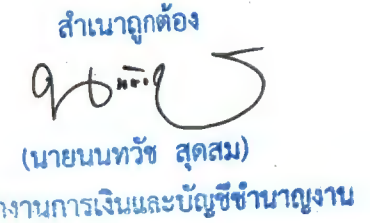 สำเนาถูกต้อง
(นายนนทวัช สุดสม)
งานการเงินและบัญชีชำนาญงาน